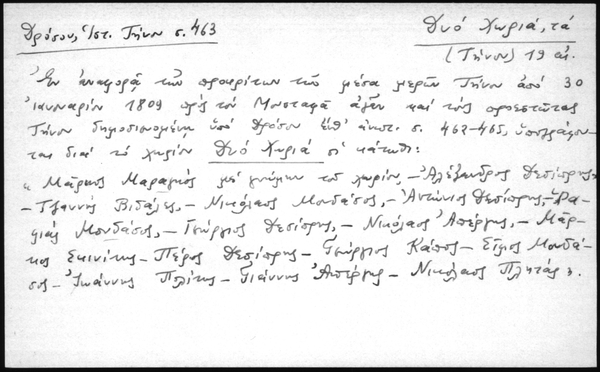 Δρόσου, Ἱστ. Τήνου σ. 463
Δυό Χωριά, τά
(Τήνου) 19 αἰ.
Ἐν ἀναφορᾷ τῶν προκρίτων τῶν μέσα μερῶν Τήνου ἀπό 30
Ἰανουαρίου 1809 πρός τόν Μουσταφᾶ ἀγᾶν καί τούς προεστῶτας
Τήνου δημοσιευομένῃ ὑπό Δρόσου ἔνθ' ἀνωτ. σ. 462-465, ὑπογράφον-
ται διά τό χωρίον Δυό Χωριά οἱ κάτωθι:
« Μᾶρκος Μαραγκός μέ γνώμην τοῦ χωρίου, - Ἀλέξανδρος Δεσύπρης
- Τζαννής Βιδάλες, - Νικόλαος Μονδᾶσος, - Ἀντώνιος Δεσύπρης, -
Μονδᾶσος, - Γεώργιος Δεσύπρης, - Νικόλαος Ἀπέργης, - Μᾶρ-
κος - Πέτρος Δεσύπρης - Γεώργιος Κάπος - Μονδᾶ-
σος - Ἰωάννης Πολίτης - Γιάννης Ἀπέργης - Νικόλαος Πλητᾶς ».